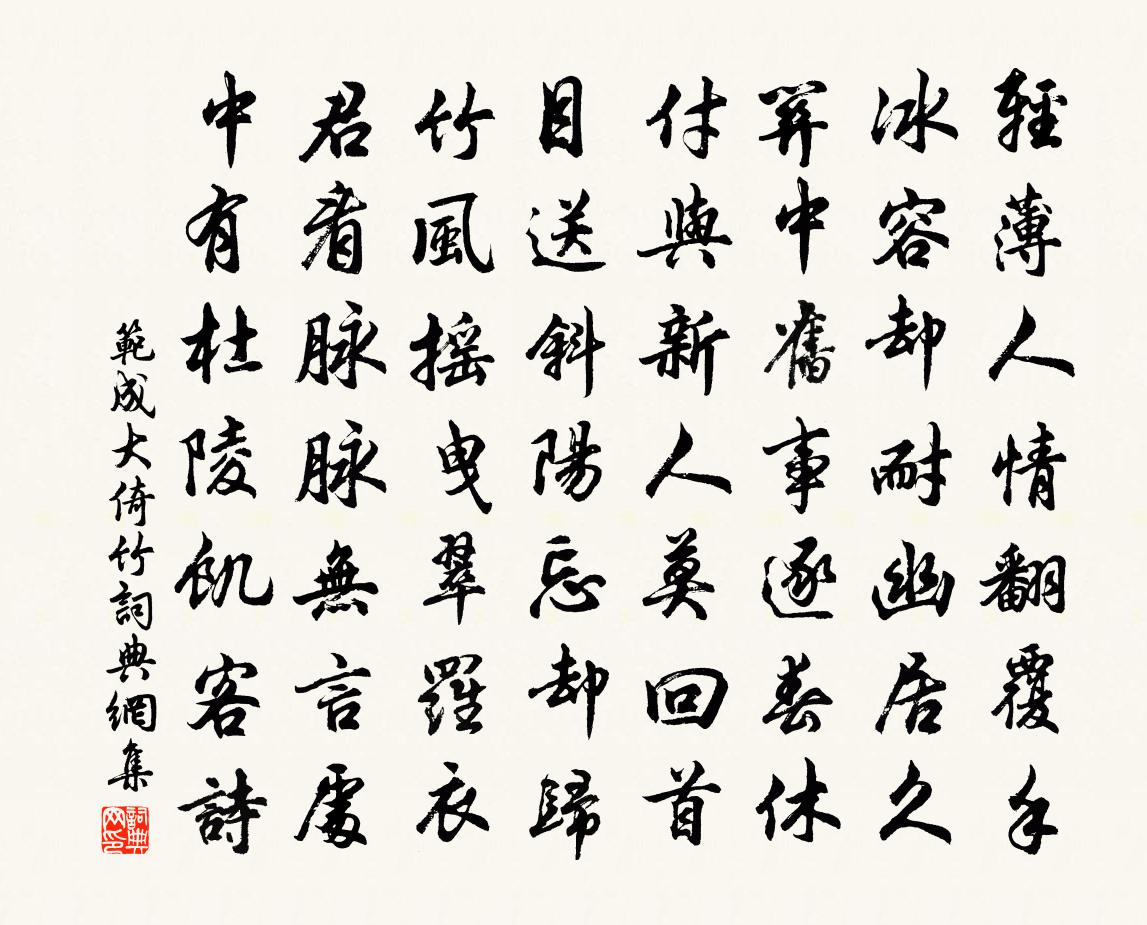 輕薄人情翻覆手
冰容却耐幽居久
笄中舊事逐春休
付與新人莫回首
目送斜陽忘却歸
竹風搖曳翠羅衣
君看脉脉無言處
中有杜陵飢客詩
範成大倚竹詞典網集
詞典網印